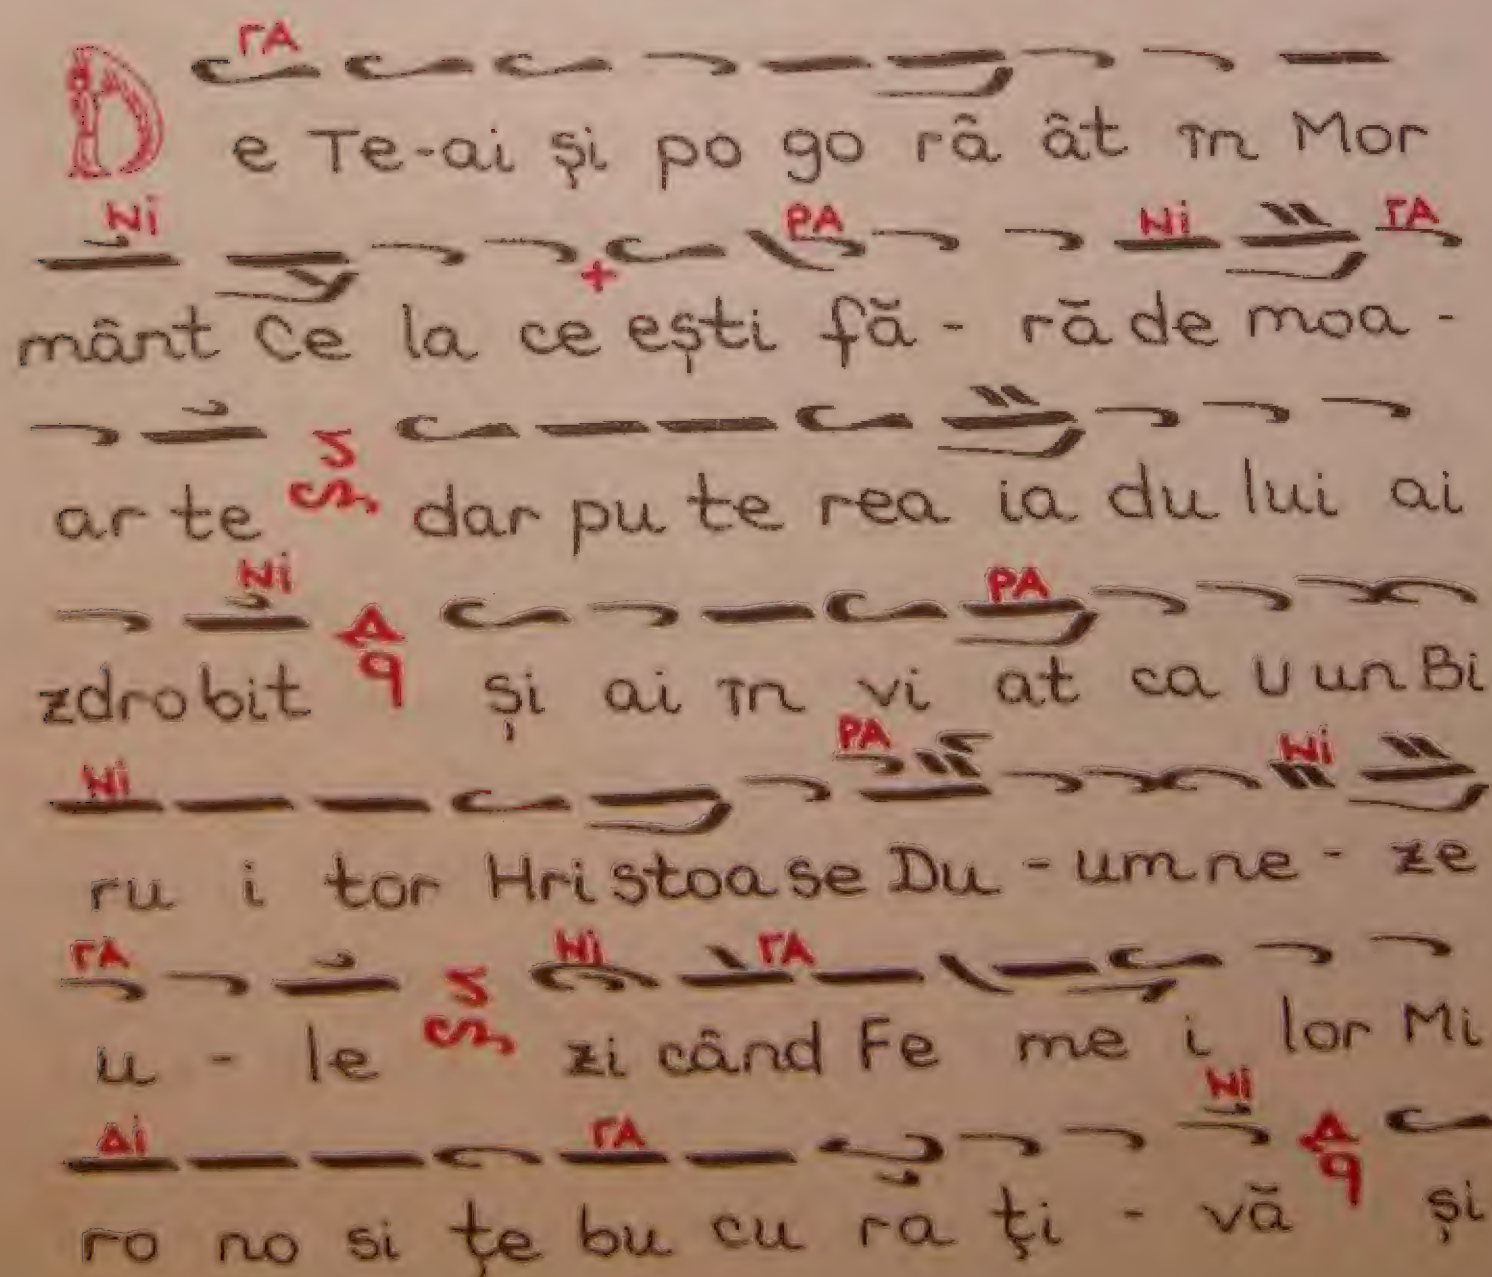 ΓΑ
De Te-ai și po go râ ât în Mor
Ni PA Ni ΓΑ
mânt Ce la ce ești fă - ră de moa -
ar te dar pu te rea ia du lui ai
Ni PA
zdro bit Δ q și ai în vi at ca U un Bi
Ni PA Ni
ru i tor Hri stoa se Du - um ne - ze
ΓΑ Ni ΓΑ
u - le zi când Fe me i lor Mi
Δi ΓΑ Ni
ro no si țe bu cu ra ți - vă Δ q și